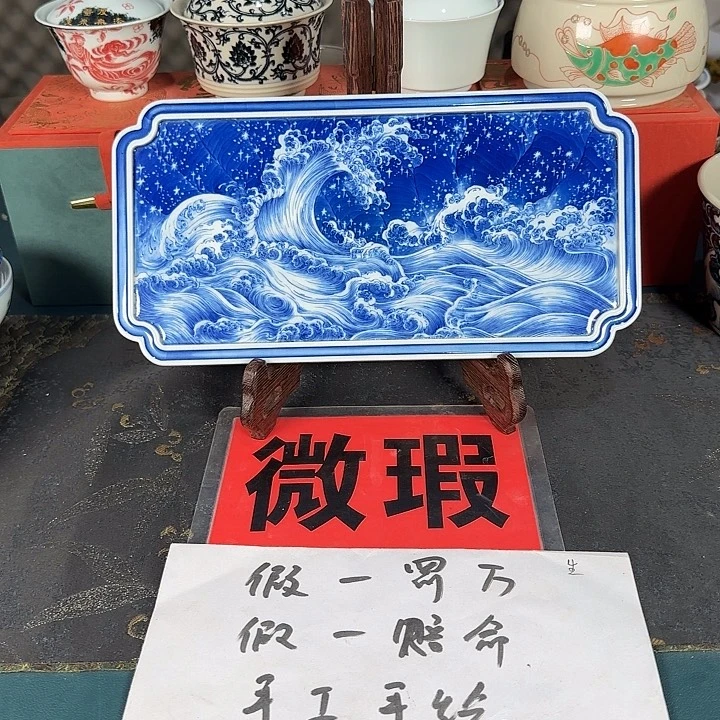 微瑕
假一罚万
假一赔命
手工手绘